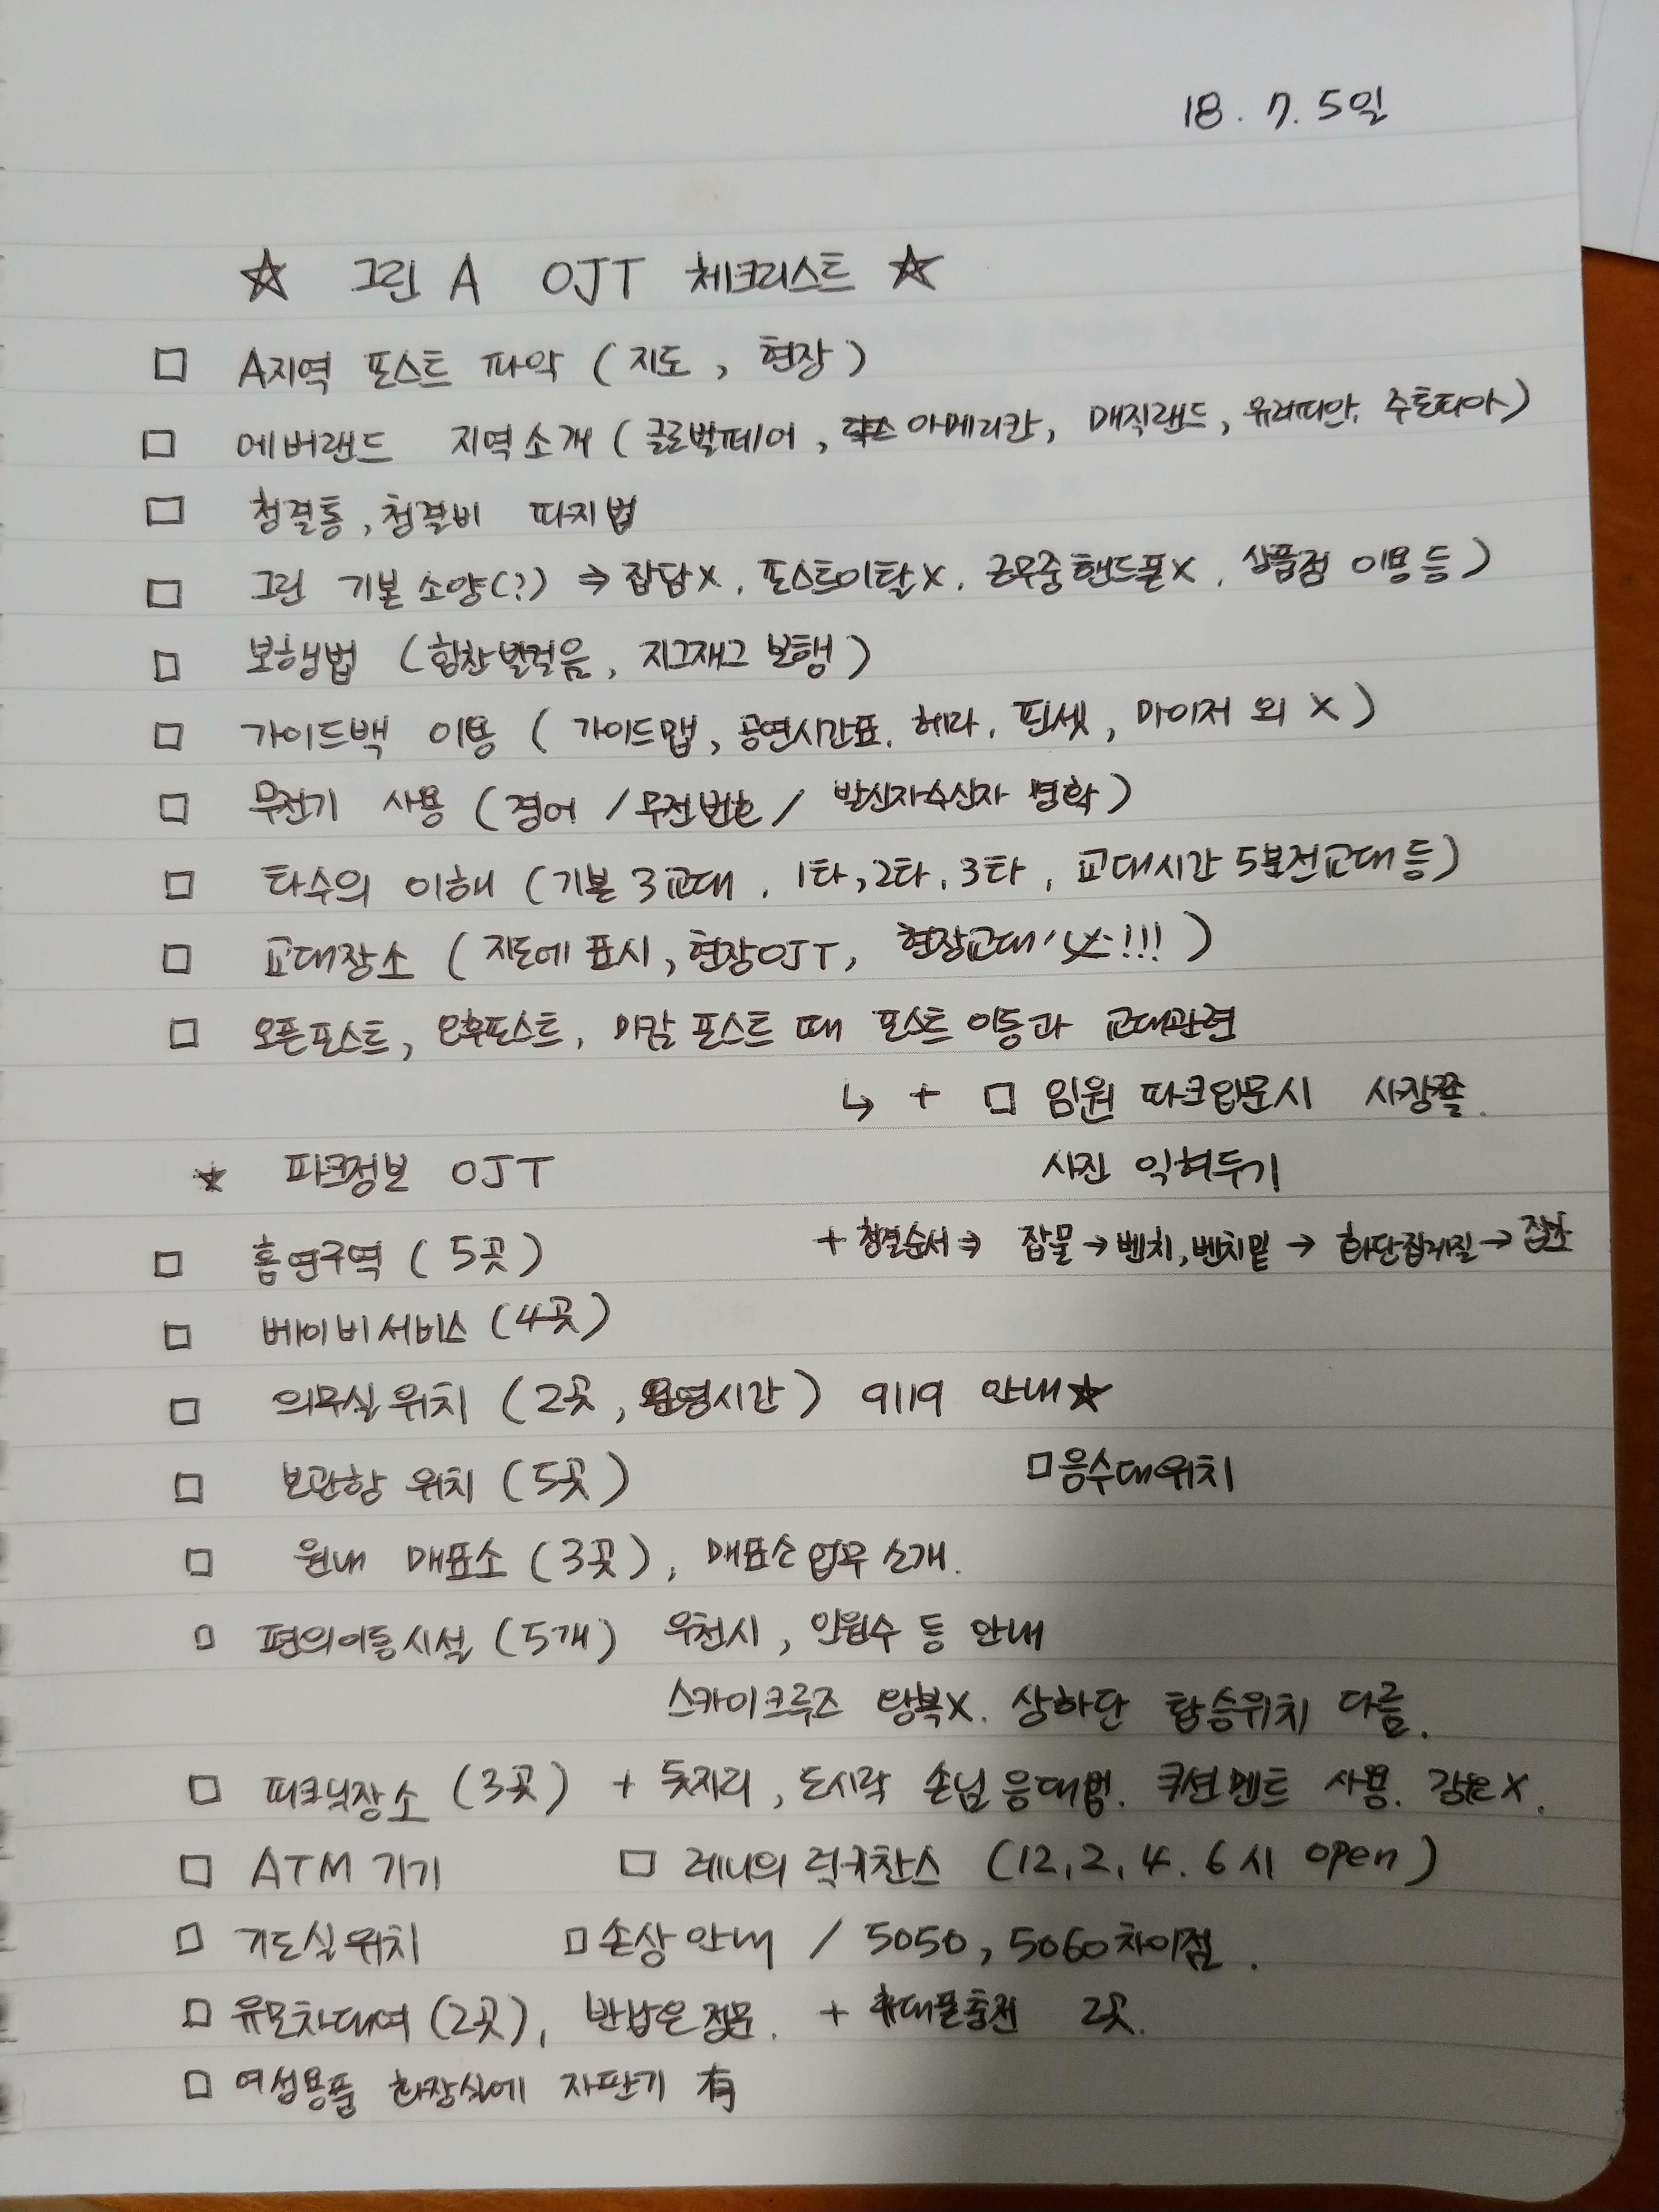 18. 7. 5일
☆ 그린 A OJT 체크리스트 ☆
□ A지역 포스트 파악 ( 지도, 현장 )
□ 에버랜드 지역소개 ( 글로벌페어, 아메리칸, 매직랜드, 유러피안, 주토피아 )
□ 청결통, 청결비 파지법
□ 그린 기본 소양(?) ⇒ 잡담X, 포스트이탈X, 근무중핸드폰X, 상품점 이용 등 )
□ 보행법 ( 힘찬발걸음, 지그재그 보행 )
□ 가이드백 이용 ( 가이드맵, 공연시간표, 헤라, 핀셋, 마이저 외 X )
□ 무전기 사용 ( 경어 / 무전번호 / 발신자수신자 명확 )
□ 타수의 이해 ( 기본 3교대, 1타, 2타, 3타, 교대시간 5분전교대 등 )
□ 교대장소 ( 지도에 표시, 현장OJT, 현장교대 !!! )
□ 오픈포스트, 오후포스트, 마감 포스트 때 포스트 이동과 교대관련
↳ + □ 임원 파크입문시 사장쯤.
☆ 파크정보 OJT 사진 익혀두기
□ 흡연구역 ( 5곳 ) + 청결순서 ⇒ 잡물 → 벤치, 벤치밑 → 화단집게질 →
□ 베이비서비스 ( 4곳 )
□ 의무실위치 ( 2곳, 운영시간 ) 9119 안내☆
□ 보관함 위치 ( 5곳 ) □ 음수대위치
□ 원내 매표소 ( 3곳 ), 매표소업무 소개.
□ 편의이동시설 ( 5개 ) 우천시, 인원수 등 안내
스카이크루즈 왕복X. 상하단 탑승위치 다름.
□ 피크닉장소 ( 3곳 ) + 돗자리, 도시락 손님 응대법. 쿠션멘트 사용. 강요X.
□ ATM 기기 □ 레니의 럭키찬스 ( 12, 2, 4. 6시 open )
□ 기도실위치 □ 손상안내 / 5050, 5060차이점.
□ 유모차대여 (2곳), 반납은 정문. + 휴대폰충전 2곳.
□ 여성용품 화장실에 자판기 有